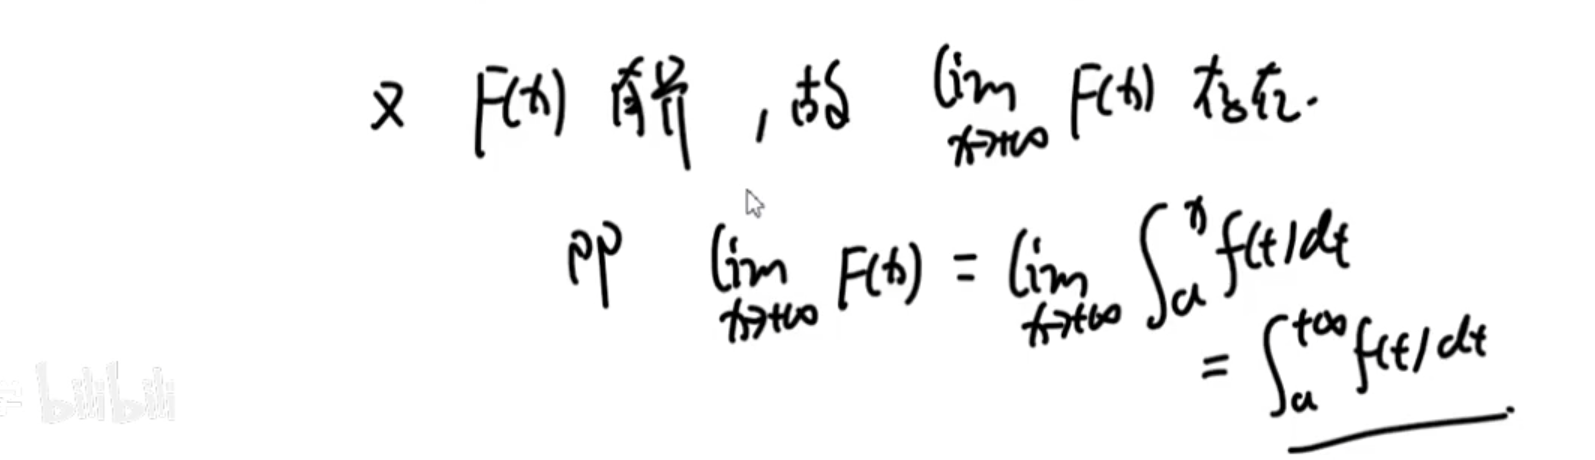 又 F(x) 有界，故 lim x→+∞ F(x) 存在.
即 lim x→+∞ F(x) = lim x→+∞ ∫_a^x f(t)dt
= ∫_a^{+∞} f(t)dt
bilibili